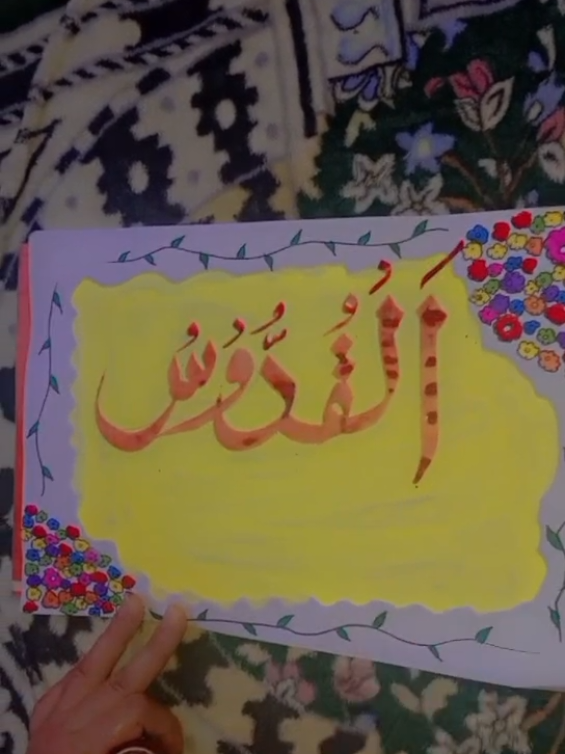 اَلْقُدُّوْسُ